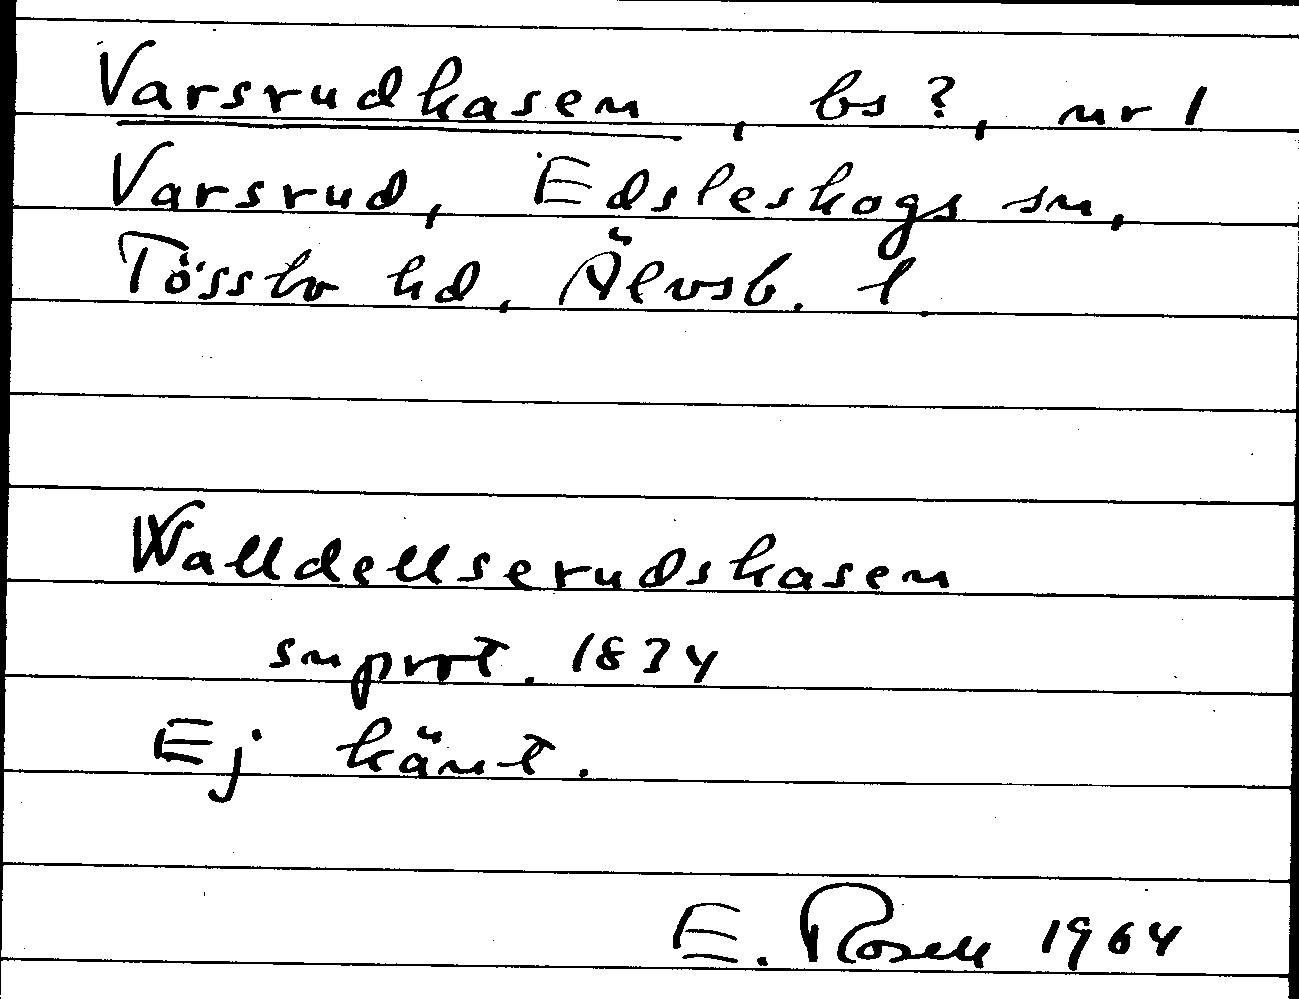 Varsrudkasen, bs?, nr 1
Varsrud, Edsleskogs sn,
Tössbo hd, Älvsb. l.
Walldellserudskasen
snprot. 1834
Ej känt.
E. Rosell 1964